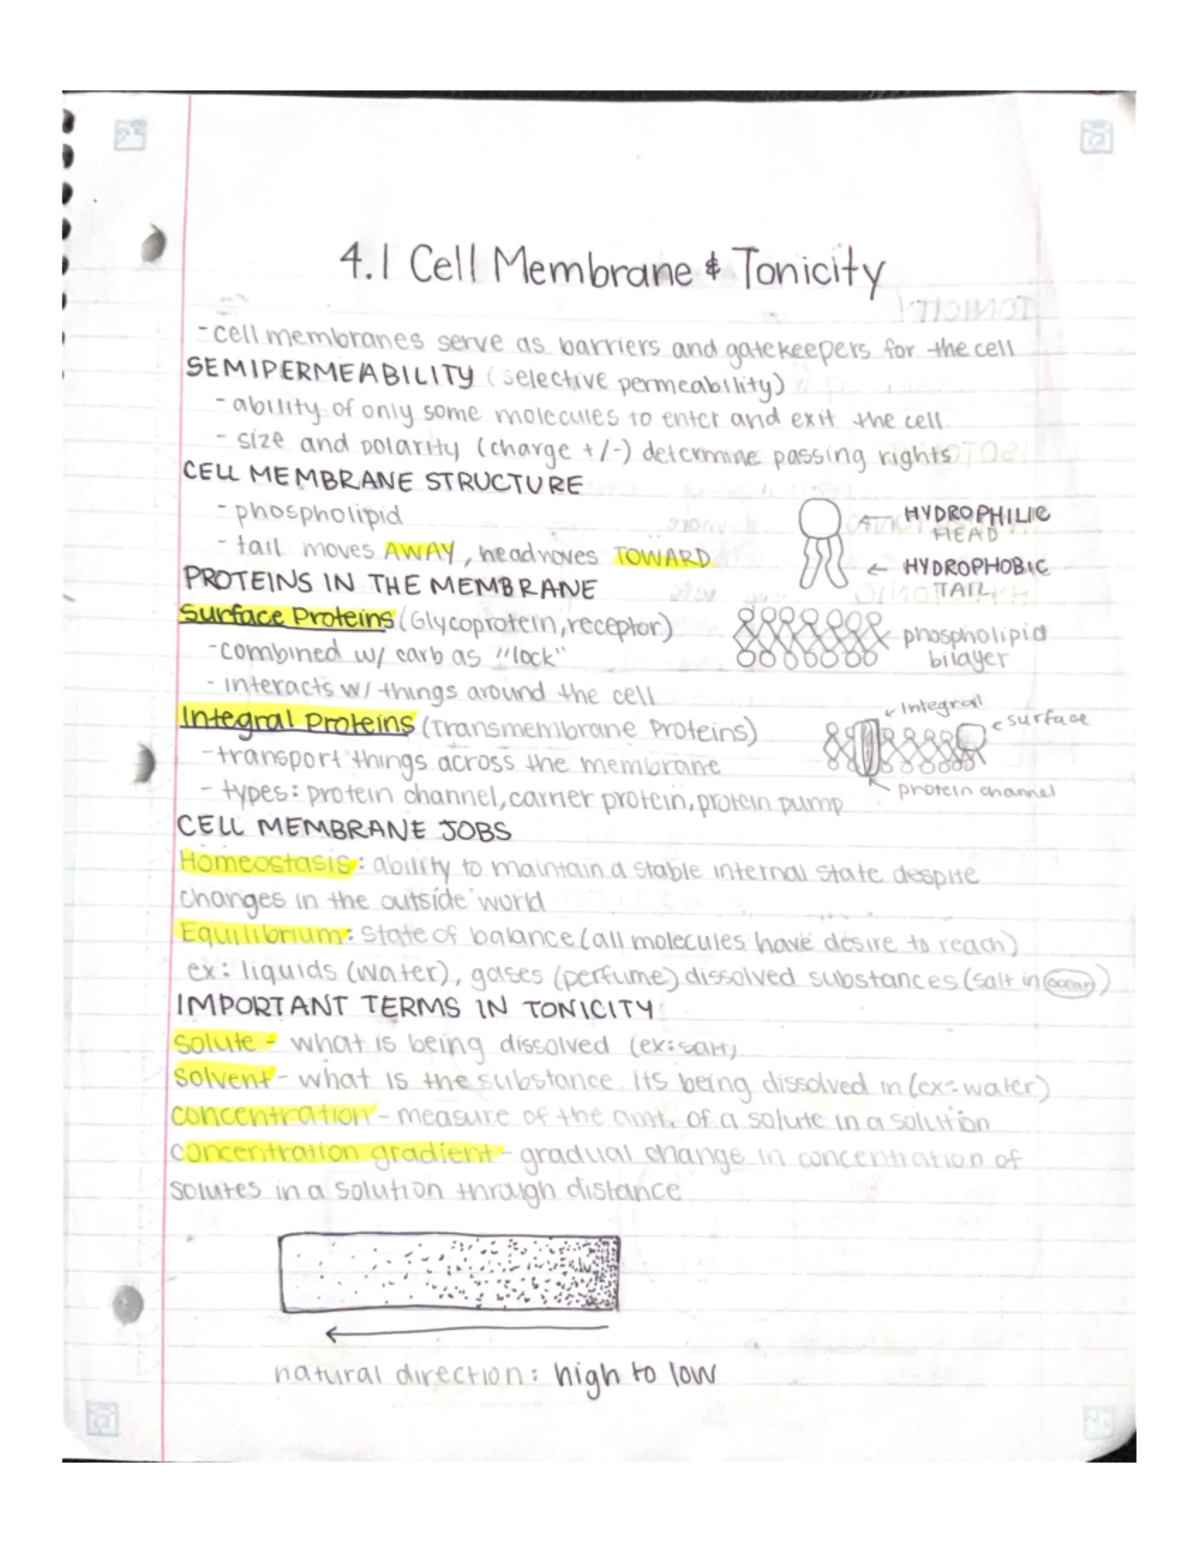 4.1 Cell Membrane & Tonicity
- cell membranes serve as barriers and gatekeepers for the cell
SEMIPERMEABILITY (selective permeability)
- ability of only some molecules to enter and exit the cell
- size and polarity (charge +/-) determine passing rights
CELL MEMBRANE STRUCTURE
- phospholipid
- tail moves AWAY, head moves TOWARD
← HYDROPHILIC
HEAD
← HYDROPHOBIC
TAIL
PROTEINS IN THE MEMBRANE
Surface Proteins (Glycoprotein, receptor)
- combined w/ carb as "lock"
- interacts w/ things around the cell
phospholipid
bilayer
Integral Proteins (Transmembrane Proteins)
- transport things across the membrane
- types: protein channel, carrier protein, protein pump
Integral
surface
protein channel
CELL MEMBRANE JOBS
Homeostasis: ability to maintain a stable internal state despite
changes in the outside world
Equilibrium: state of balance (all molecules have desire to reach)
ex: liquids (water), gases (perfume) dissolved substances (salt in ocean)
IMPORTANT TERMS IN TONICITY
Solute - what is being dissolved (ex: salt)
Solvent - what is the substance its being dissolved in (ex: water)
concentration - measure of the amt. of a solute in a solution
concentration gradient - gradual change in concentration of
solutes in a solution through distance
natural direction: high to low